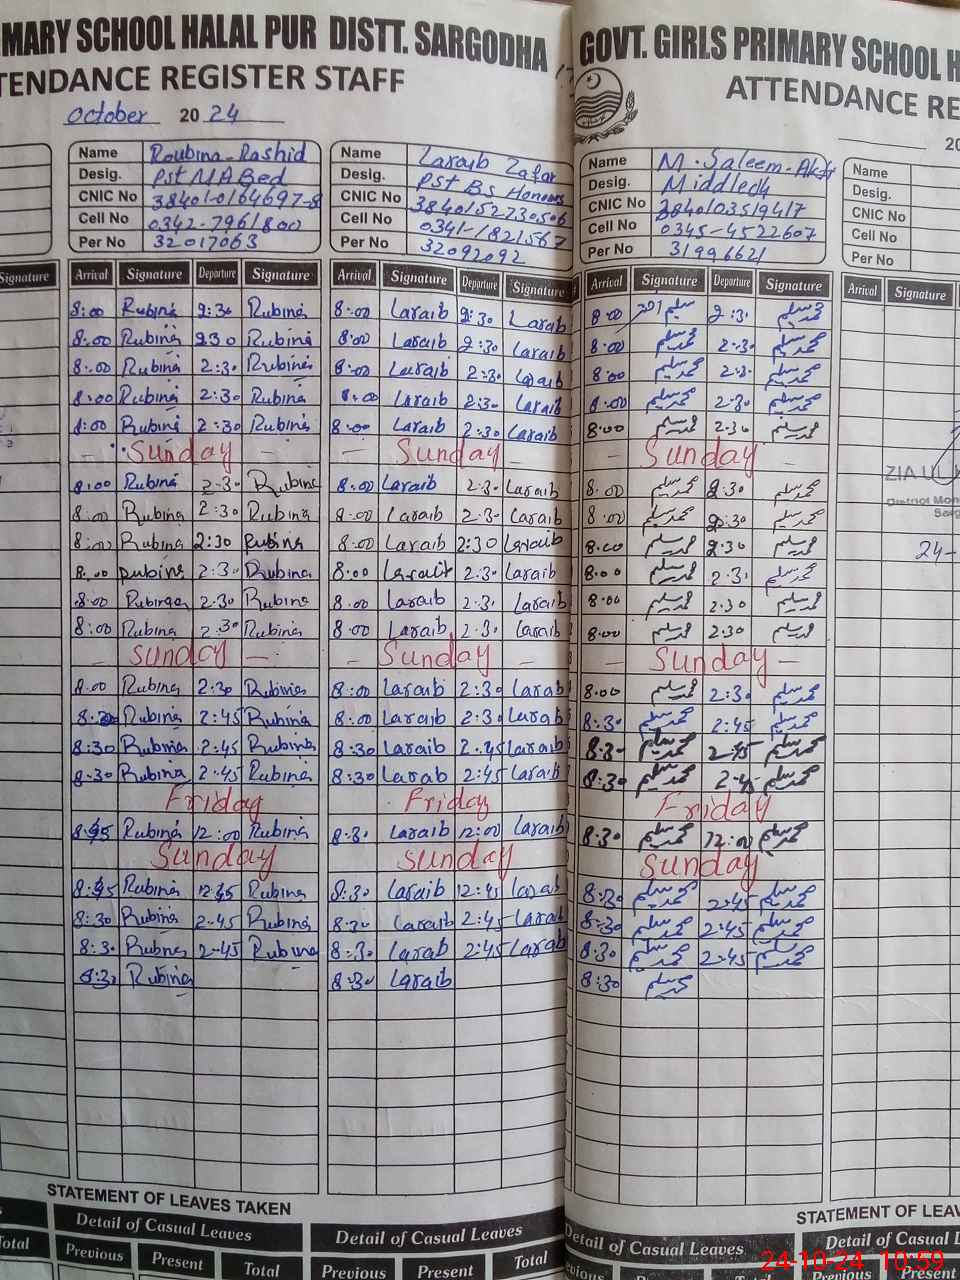 MARY SCHOOL HALAL PUR DISTT. SARGODHA
TENDANCE REGISTER STAFF
October 2024
Name Roubina-Rashid
Desig. Pst M A Bed
CNIC No 38401-0164697-8
Cell No 0342-7961800
Per No 32017063
Name Laraib Zafar
Desig. Pst Bs Honours
CNIC No 3840152730506
Cell No 0341-1821567
Per No 32092092
Signature Arrival Signature Departure Signature Arrival Signature Departure Signature
8:00 Rubina 2:30 Rubina 8:00 Laraib 2:30 Laraib
8:00 Rubina 230 Rubina 8:00 Laraib 2:30 Laraib
8:00 Rubina 2:30 Rubina 8:00 Laraib 2:30 Laraib
8:00 Rubina 2:30 Rubina 8:00 Laraib 2:30 Laraib
8:00 Rubina 2:30 Rubina 8:00 Laraib 2:30 Laraib
Sunday Sunday
8:00 Rubina 2:30 Rubina 8:00 Laraib 2:30 Laraib
8:00 Rubina 2:30 Rubina 8:00 Laraib 2:30 Laraib
8:00 Rubina 2:30 Rubina 8:00 Laraib 2:30 Laraib
8:00 Rubina 2:30 Rubina 8:00 Laraib 2:30 Laraib
8:00 Rubina 2:30 Rubina 8:00 Laraib 2:3. Laraib
8:00 Rubina 2:30 Rubina 8:00 Laraib 2:3. Laraib
Sunday Sunday
8:00 Rubina 2:30 Rubina 8:00 Laraib 2:30 Laraib
8:30 Rubina 2:45 Rubina 8:00 Laraib 2:30 Laraib
8:30 Rubina 2:45 Rubina 8:30 Laraib 2:45 Laraib
8:30 Rubina 2:45 Rubina 8:30 Larab 2:45 Laraib
Friday Friday
Rubina 12:00 Rubina 8:3. Laraib 12:00 Laraib
Sunday Sunday
Rubina Rubina 8:30 Laraib 12:45 Larab
8:30 Rubina 2:45 Rubina 8:30 Laraib 2:45 Larab
8:30 Rubna 2:45 Rubina 8:30 Larab 2:45 Larab
8:30 Rubina 8:30 Laraib
STATEMENT OF LEAVES TAKEN
Detail of Casual Leaves Detail of Casual Leaves
Total Previous Present Total Previous Present Total
GOVT. GIRLS PRIMARY SCHOOL H
ATTENDANCE RE
20
Name M. Saleem-Akhtar
Desig.
CNIC No 3840103519417
Cell No 0345-4522607
Per No 31996621
Name
Desig.
CNIC No
Cell No
Per No
Arrival Signature Departure Signature Arrival Signature
8:00 2:3. محمد سلیم
8:00 محمد سلیم 2:3. محمد سلیم
8:00 محمد سلیم 2:3. محمد سلیم
8:00 محمد سلیم 2:30 محمد سلیم
8:00 محمد سلیم 2:30 محمد سلیم
Sunday
8:00 محمد سلیم 2:30 محمد سلیم
8:00 محمد سلیم 2:30 محمد سلیم
8:00 محمد سلیم 2:30 محمد سلیم
8:00 محمد سلیم 2:3. محمد سلیم
8:00 محمد سلیم 2:30 محمد سلیم
8:00 محمد سلیم 2:30 محمد سلیم
Sunday
8:00 محمد سلیم 2:30 محمد سلیم
8:30 محمد سلیم 2:45 محمد سلیم
8:30 محمد سلیم 2:45 محمد سلیم
8:30 محمد سلیم 2:45 محمد سلیم
Friday
8:30 محمد سلیم 12:00 محمد سلیم
Sunday
8:30 محمد سلیم 2:45 محمد سلیم
8:30 محمد سلیم 2:45 محمد سلیم
8:30 محمد سلیم 2:45 محمد سلیم
8:30 محمد سلیم
ZIA UL
District Mon
Sarg
24-
STATEMENT OF LEAV
Detail of Casual Leaves Detail of Casual L
Previous Present Total Previous
24-10-24 10:59